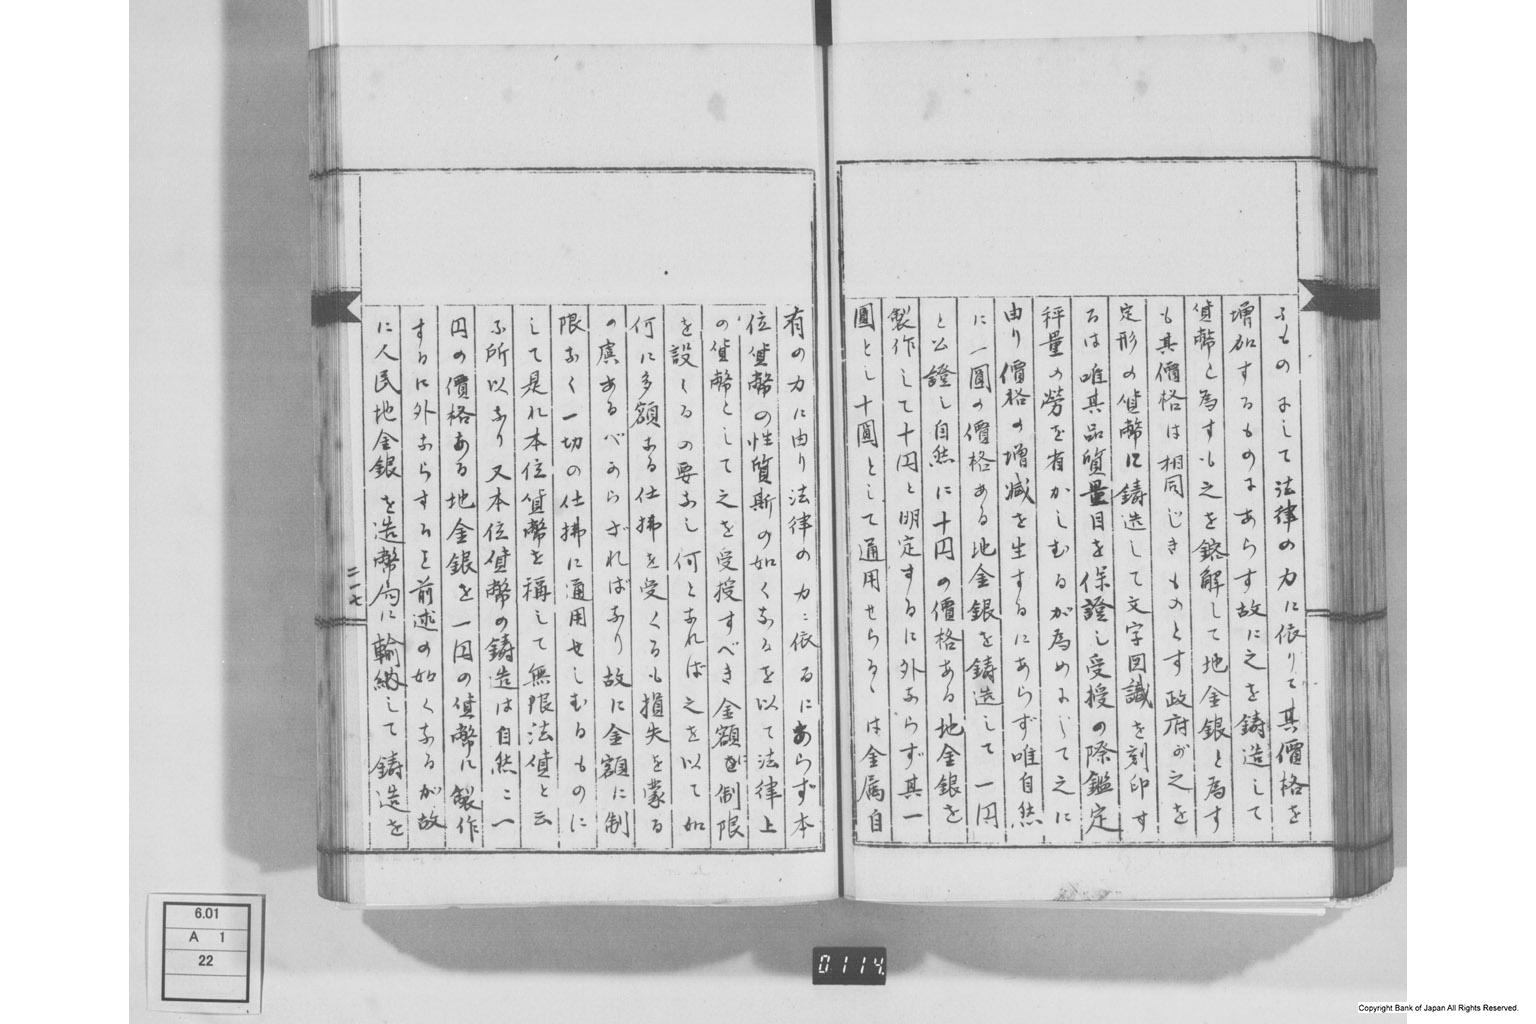 ふものにして法律の力に依りて其價格を
増加するものにあらす故に之を鑄造して
貨幣と為すも之を鎔解して地金銀と為す
も其價格は相同じきものとす政府が之を
定形の貨幣に鑄造して文字圖識を刻印す
るは唯其品質量目を保證し受授の際鑑定
秤量の勞を省かしむるが為めにして之に
由り價格の増減を生するにあらず唯自然
に一圓の價格ある地金銀を鑄造して一円
と公證し自然に十円の價格ある地金銀を
製作して十円と明定するに外ならず其一
圓とし十圓として通用せらるゝは金属自
有の力に由り法律の力に依るにあらず本
位貨幣の性質斯の如くなるを以て法律上
の貨幣として之を受授すべき金額に制限
を設くるの要なし何となれば之を以て如
何に多額なる仕拂を受くるも損失を蒙る
の虞あるべからざればなり故に金額に制
限なく一切の仕拂に通用せしむるものに
して是れ本位貨幣を稱して無限法貨と云
ふ所以なり又本位貨幣の鑄造は自然に一
円の價格ある地金銀を一円の貨幣に製作
するに外ならすること前述の如くなるが故
に人民地金銀を造幣局に輸納して鑄造を
二一七
6.01
A 1
22
0114
Copyright Bank of Japan All Rights Reserved.